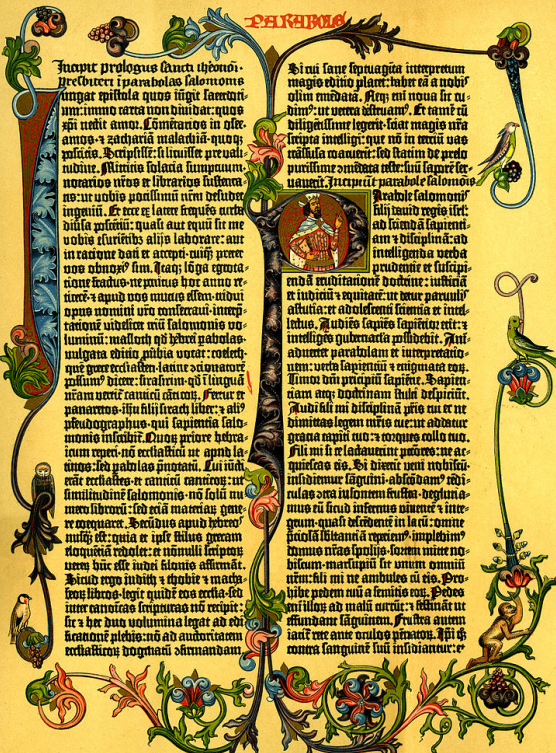 PARABOLE
Incipit prologus sancti iheronimi
presbiteri i parabolas salomonis
Iungat epistola quos iūgit sacerdotiū:
immo carta non dividat: quos
xpi nectit amor. Cōmētarios in osee.
amos. ⁊ zachariā malachiā. quoqȝ
poscitis. Scripsissē: si licuisset pre valitudine.
Mittitis solacia sumptuum.
notarios nr̄os et librarios sustentatis:
ut vobis potissimū nr̄m desudet
ingeniū. Et ecce ex latere frequēs turba
diūsa poscētiū: quasi aut equū sit me
vobis esurietibȝ alijs laborare: aut
in ratione dati et accepti. cuiqȝ preter
vos obnoxiȝ sim. Itaqȝ lōga egrotatione
fractus. ne penitus hoc anno reticerē.
⁊ apud vos mutus essem. tridui
opus nomini vr̄o consecravi. interpretationē
videlicet triū salomonis voluminū:
masloth qd̄ hebrei parabolas.
vulgata editio pūbia vocat: coeleth.
quē grece ecclesiasten. latine cōcionatorē
possumȝ dicere: sirasirim. qd̄ i linguā
nr̄am vertit̄ canticū cāticoȝ. Fertur et
panaretos. ihū filij sirach liber: ⁊ aliȝ
pseudographus. qui sapientia salomonis
inscribit̄. Quoȝ priore hebraicum
reperi. nō ecclesiasticū ut apud latinos:
sed pabolas p̄notatū. Cui iūcti
erāt ecclesiastes. et canticū canticoȝ: ut
similitudinē salomonis. nō solū numero
libroȝ: sed etiā materiaȝ genere
coequaret. Secūdus apud hebreos
nusqȝ est: quia et ipse stilus grecam
eloquētiā redolet: et nōnulli scriptoȝ
veteȝ hūc esse iudei filonis affirmāt.
Sicud ergo iudith ⁊ thobie ⁊ machabeoȝ
libros. legit quidē eos ecclīa. sed
inter canonicas scripturas nō recipit:
sic ⁊ hec duo volumina legat ad edificationē
plebis: nō ad auctoritatem
ecclesiasticoȝ dogmatū ɔfirmandam.
Si cui sane septuaginta interpretum
magis editio placet: habet eā a nobis
olim emēdatā. Neqȝ enī nova sic cudimȝ:
ut vetera destruamȝ. Et tamē cū
diligētissime legerit. sciat magis nr̄a
scripta intelligi: que nō in tertiū vas
trāsfusa coacuerīt: sed statim de prelo
purissime ɔmēdata teste: suū saporē servaverīt.
Incipiūt parabole salomōis
Parabole salomonis
filij david regis isrl̄:
ad sciendā sapientiam
⁊ disciplinā: ad
intelligenda verba
prudentie et suscipiendā
eruditationē doctrine: iusticiā
et iudiciū ⁊ equitatē: ut detur parvulis
astutia: et adolescenti scientia et intellectus.
Audiēs sapiēs sapiētior erit: ⁊
intelligēs gubernacla possidebit. Animadvertet
parabolam et interpretationem:
verba sapientiū ⁊ enigmata eoȝ.
Timor dn̄i principiū sapiētie. Sapientiam
atqȝ doctrinam stulti despiciūt.
Audi fili mi disciplinā pr̄is tui et ne
dimittas legem mr̄is tue: ut addatur
gracia capiti tuo: ⁊ torques collo tuo.
Fili mi si te lactaverīt pctōres: ne acquiescas
eis. Si dixerīt veni nobiscū.
insidiemur sāguini. abscōdamȝ tēdiculas
ɔtra insontem frustra. deglutiamus
eū sicud infernus vivente ⁊ integrum.
quasi descēdentē in lacū: omnē
preciosā substantiā reperiemȝ. implebimȝ
domus nr̄as spolijs. sortem mitte nobiscum.
marsupiū sit unum omniū
nr̄m: fili mi ne ambules cū eis. Prohibe
pedem tuū a semitis eoȝ. Pedes
enī illoȝ ad malū currūt: ⁊ festināt ut
effundant sāguinem. Frustra autem
iacit̄ rete ante oculos pēnatoȝ. Ipi qȝ
contra sanguinē suū insidiantur: et